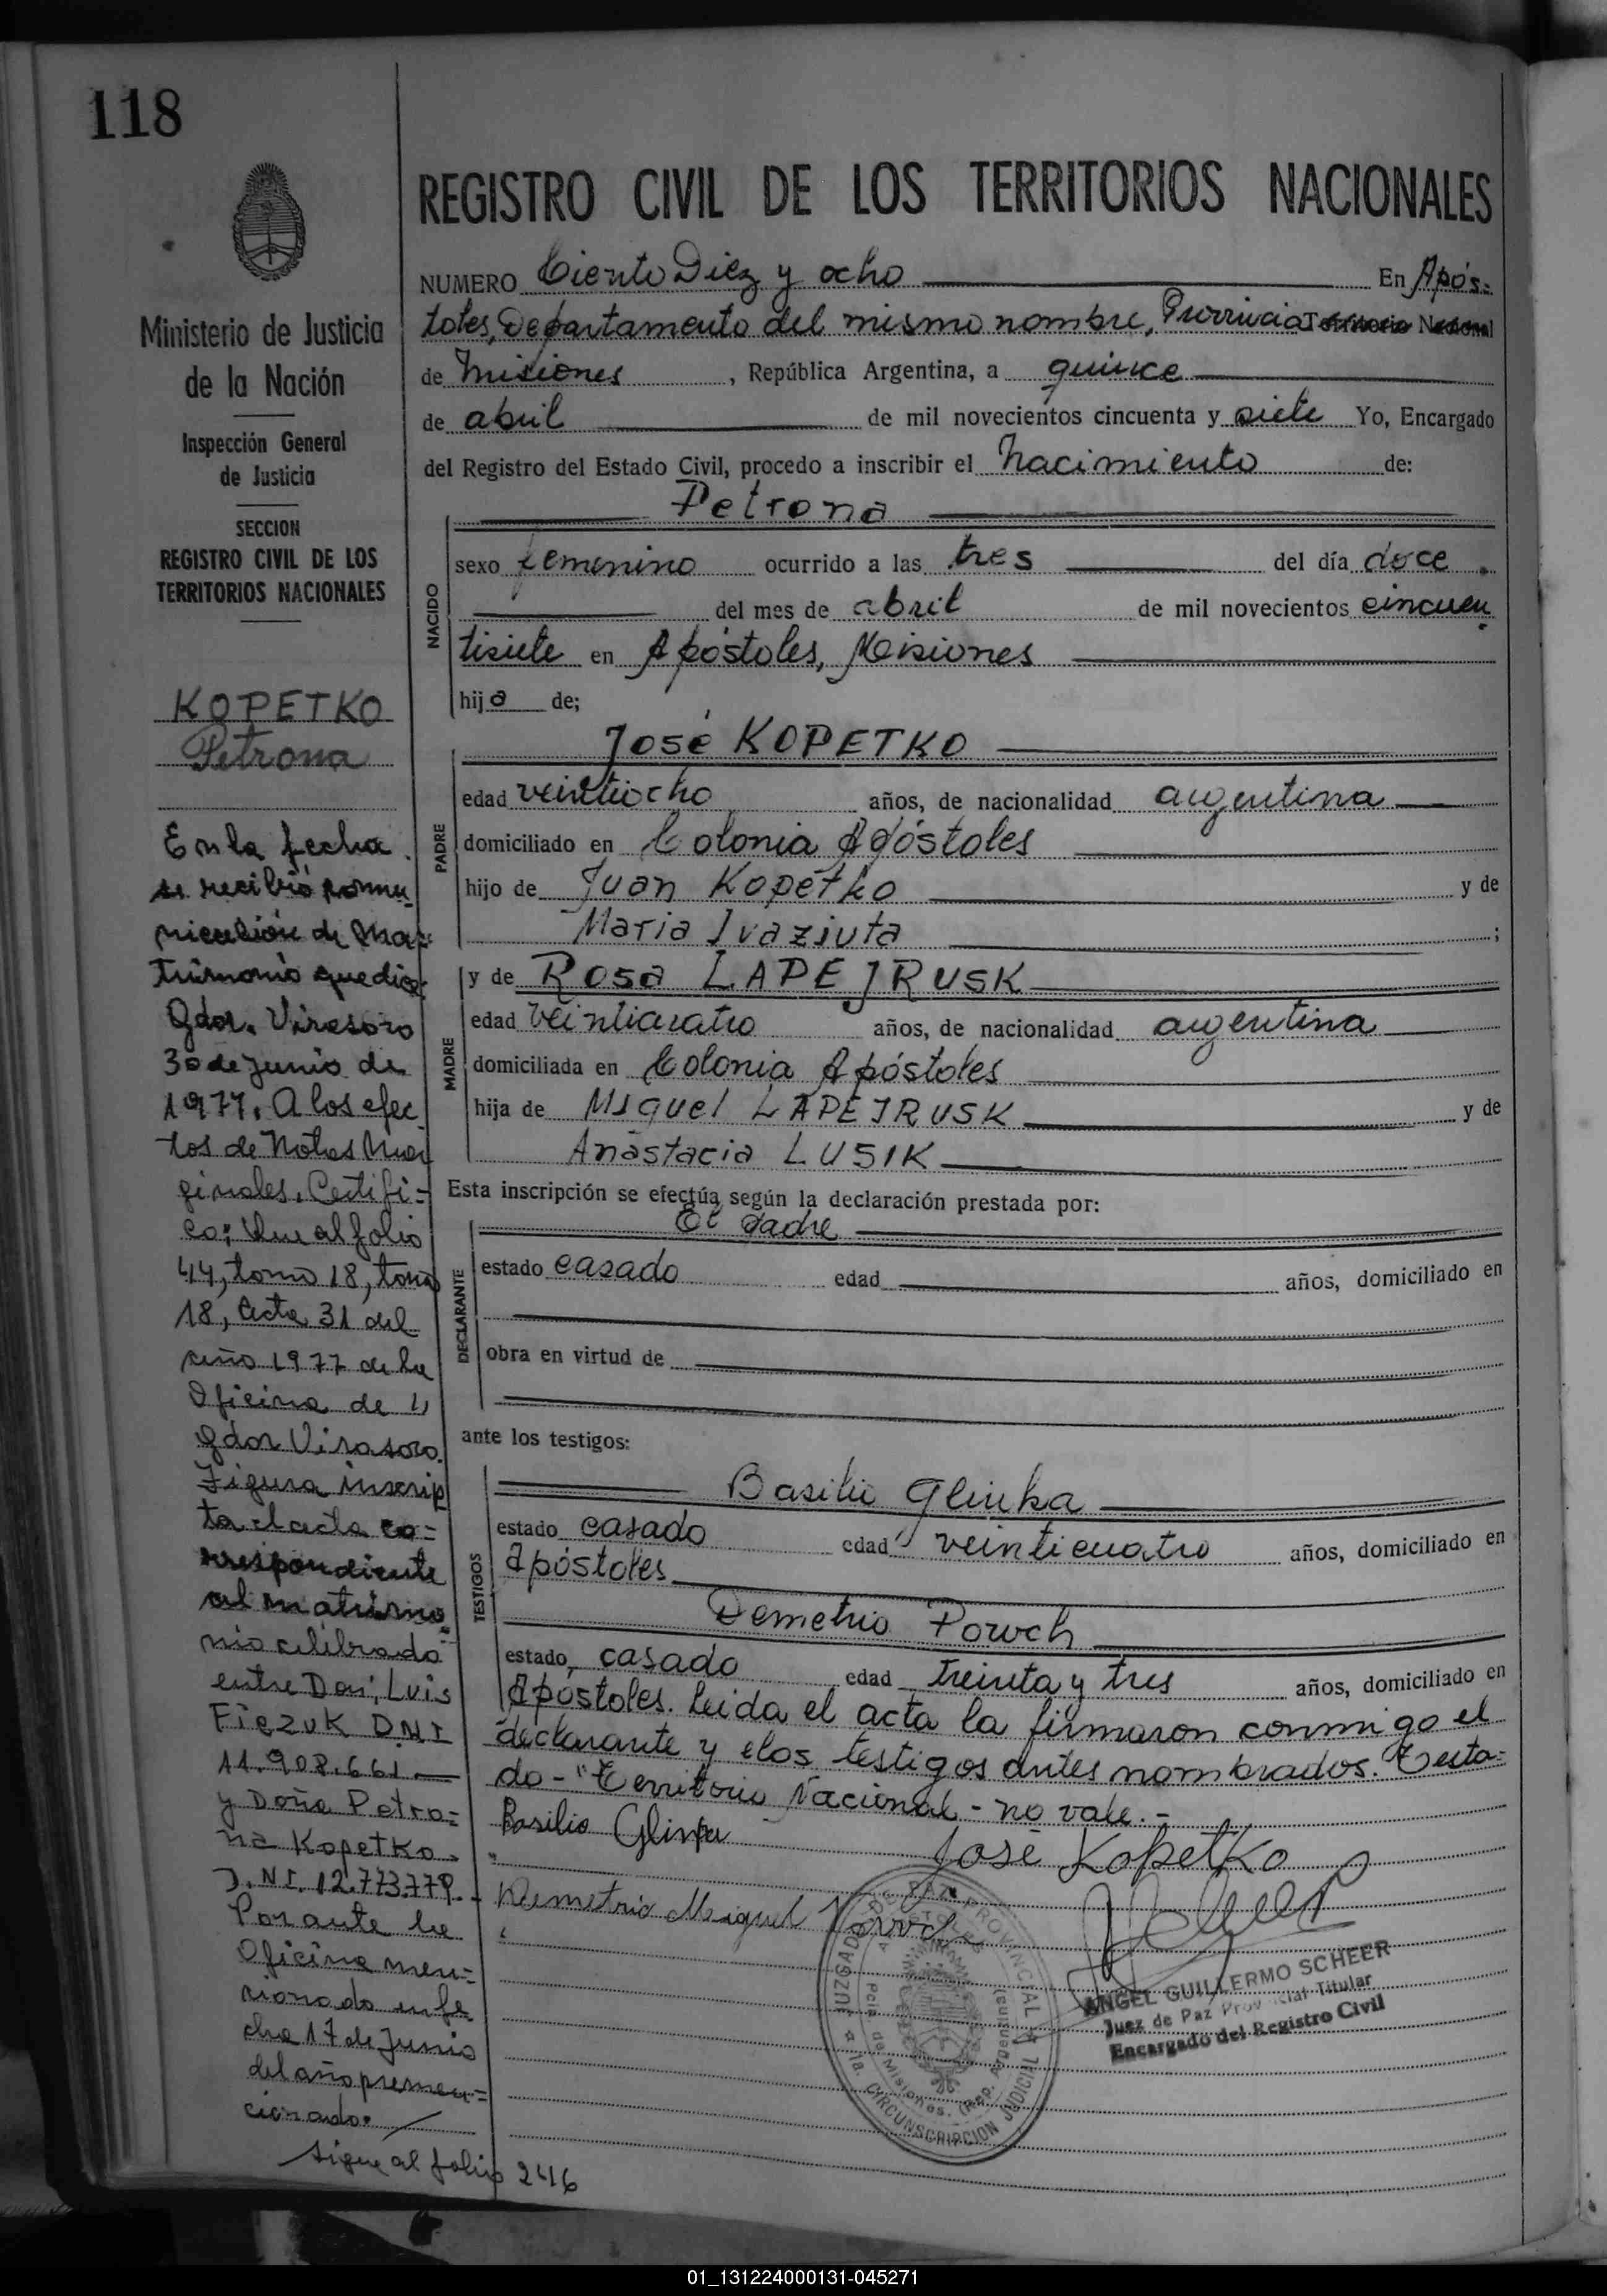 118
REGISTRO CIVIL DE LOS TERRITORIOS NACIONALES
NUMERO Ciento Diez y ocho En Após=
toles, Departamento del mismo nombre, Provincia Territorio Nacional
de Misiones, República Argentina, a quince
de abril de mil novecientos cincuenta y siete Yo, Encargado
del Registro del Estado Civil, procedo a inscribir el Nacimiento de:
Petrona
NACIDO
sexo femenino ocurrido a las tres del día doce
del mes de abril de mil novecientos cincuen
tisiete en Apóstoles, Misiones
hija de;
PADRE
José KOPETKO
edad veintiocho años, de nacionalidad argentina
domiciliado en Colonia Apóstoles
hijo de Juan Kopetko y de
Maria Ivaziuta;
MADRE
y de Rosa LAPEJRUSK
edad veinticuatro años, de nacionalidad argentina
domiciliada en Colonia Apóstoles
hija de Miguel LAPEJRUSK y de
Anastacia LUSIK
Esta inscripción se efectúa según la declaración prestada por:
DECLARANTE
El Padre
estado casado edad años, domiciliado en
obra en virtud de
ante los testigos:
TESTIGOS
Basilio Glinka
estado casado edad veinticuatro años, domiciliado en
Apóstoles
Demetrio Porvch
estado, casado edad treinta y tres años, domiciliado en
Apóstoles. Leida el acta la firmaron conmigo el
declarante y elos testigos antes nombrados. Testa=
do - "Territorio Nacional - no vale.-
Basilio Glinka
José Kopetko
Demetrio Miguel Porvch
JUZGADO DE PAZ PROVINCIAL
APOSTOLES
Pcia. de Misiones. (Rep. Argentina)
1a. CIRCUNSCRIPCION JUDICIAL
ANGEL GUILLERMO SCHEER
Juez de Paz Provincial Titular
Encargado del Registro Civil
Ministerio de Justicia
de la Nación
Inspección General
de Justicia
SECCION
REGISTRO CIVIL DE LOS
TERRITORIOS NACIONALES
KOPETKO
Petrona
En la fecha
se recibió comu
nicación de Ma=
trimonio que dice
Gdor. Virasoro
30 de Junio de
1977. A los efec
tos de Notas Mar
ginales. Certifi=
co: Que al folio
44, tomo 18, tomo
18, Acta 31 del
año 1977 de la
Oficina de
Gdor Virasoro.
Figura inscrip
ta el acta co=
rrespondiente
al matrimo
nio celibrado
entre Don; Luis
Fiezuk DNI
11.908.661
y Doña Petro=
na Kopetko.
D.NI. 12.773.779.-
Por ante la
Oficina men=
cionada en fe
cha 17 de Junio
del año premen=
cionado.
Sigue al folio 246
01_131224000131-045271